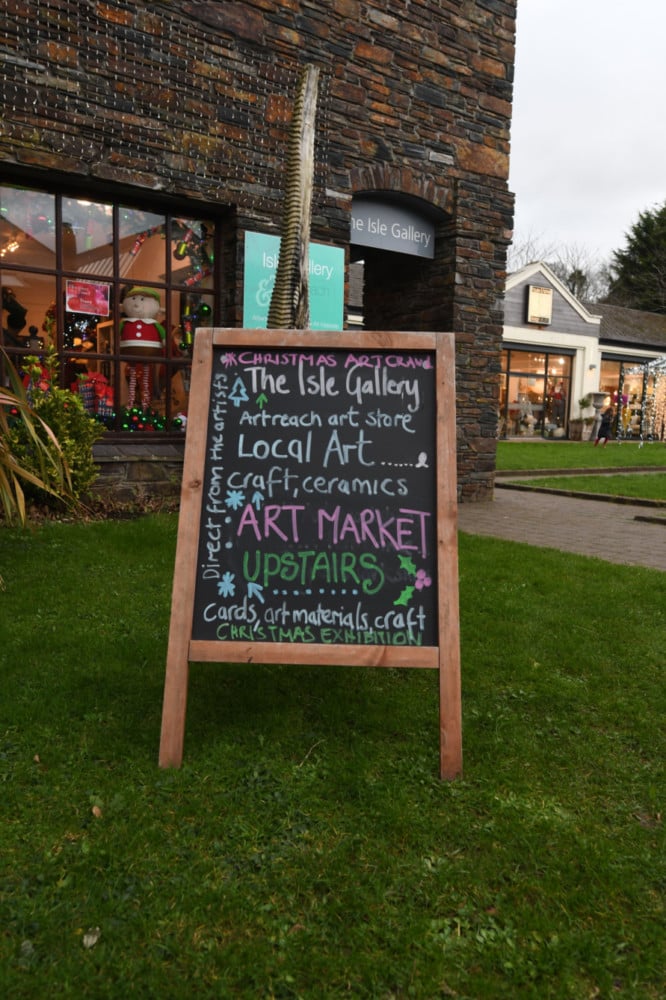 The Isle Gallery
Isle Gallery
&
CHRISTMAS ART CRAWL
The Isle Gallery
Artreach art store
Local Art
craft, ceramics
ART MARKET
UPSTAIRS
Cards, art materials, craft
CHRISTMAS EXHIBITION
Direct from the artists